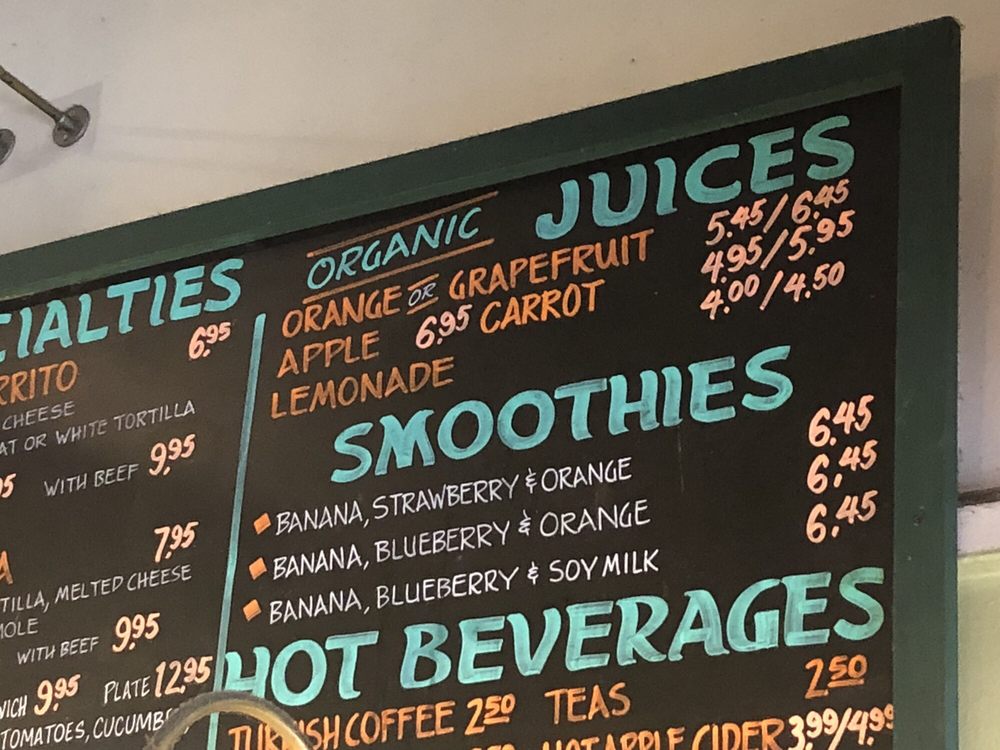 CIALTIES
6.95
RRITO
CHEESE
AT OR WHITE TORTILLA
95 WITH BEEF 9.95
7.95
A
TILLA, MELTED CHEESE
MOLE
WITH BEEF 9.95
WICH 9.95 PLATE 12.95
TOMATOES, CUCUMBE
ORGANIC JUICES
ORANGE OR GRAPEFRUIT 5.45/6.45
APPLE 6.95 CARROT 4.95/5.95
LEMONADE 4.00/4.50
SMOOTHIES
BANANA, STRAWBERRY & ORANGE 6.45
BANANA, BLUEBERRY & ORANGE 6.45
BANANA, BLUEBERRY & SOY MILK 6.45
HOT BEVERAGES
TURKISH COFFEE 2.50 TEAS 2.50
HOT APPLE CIDER 3.99/4.99